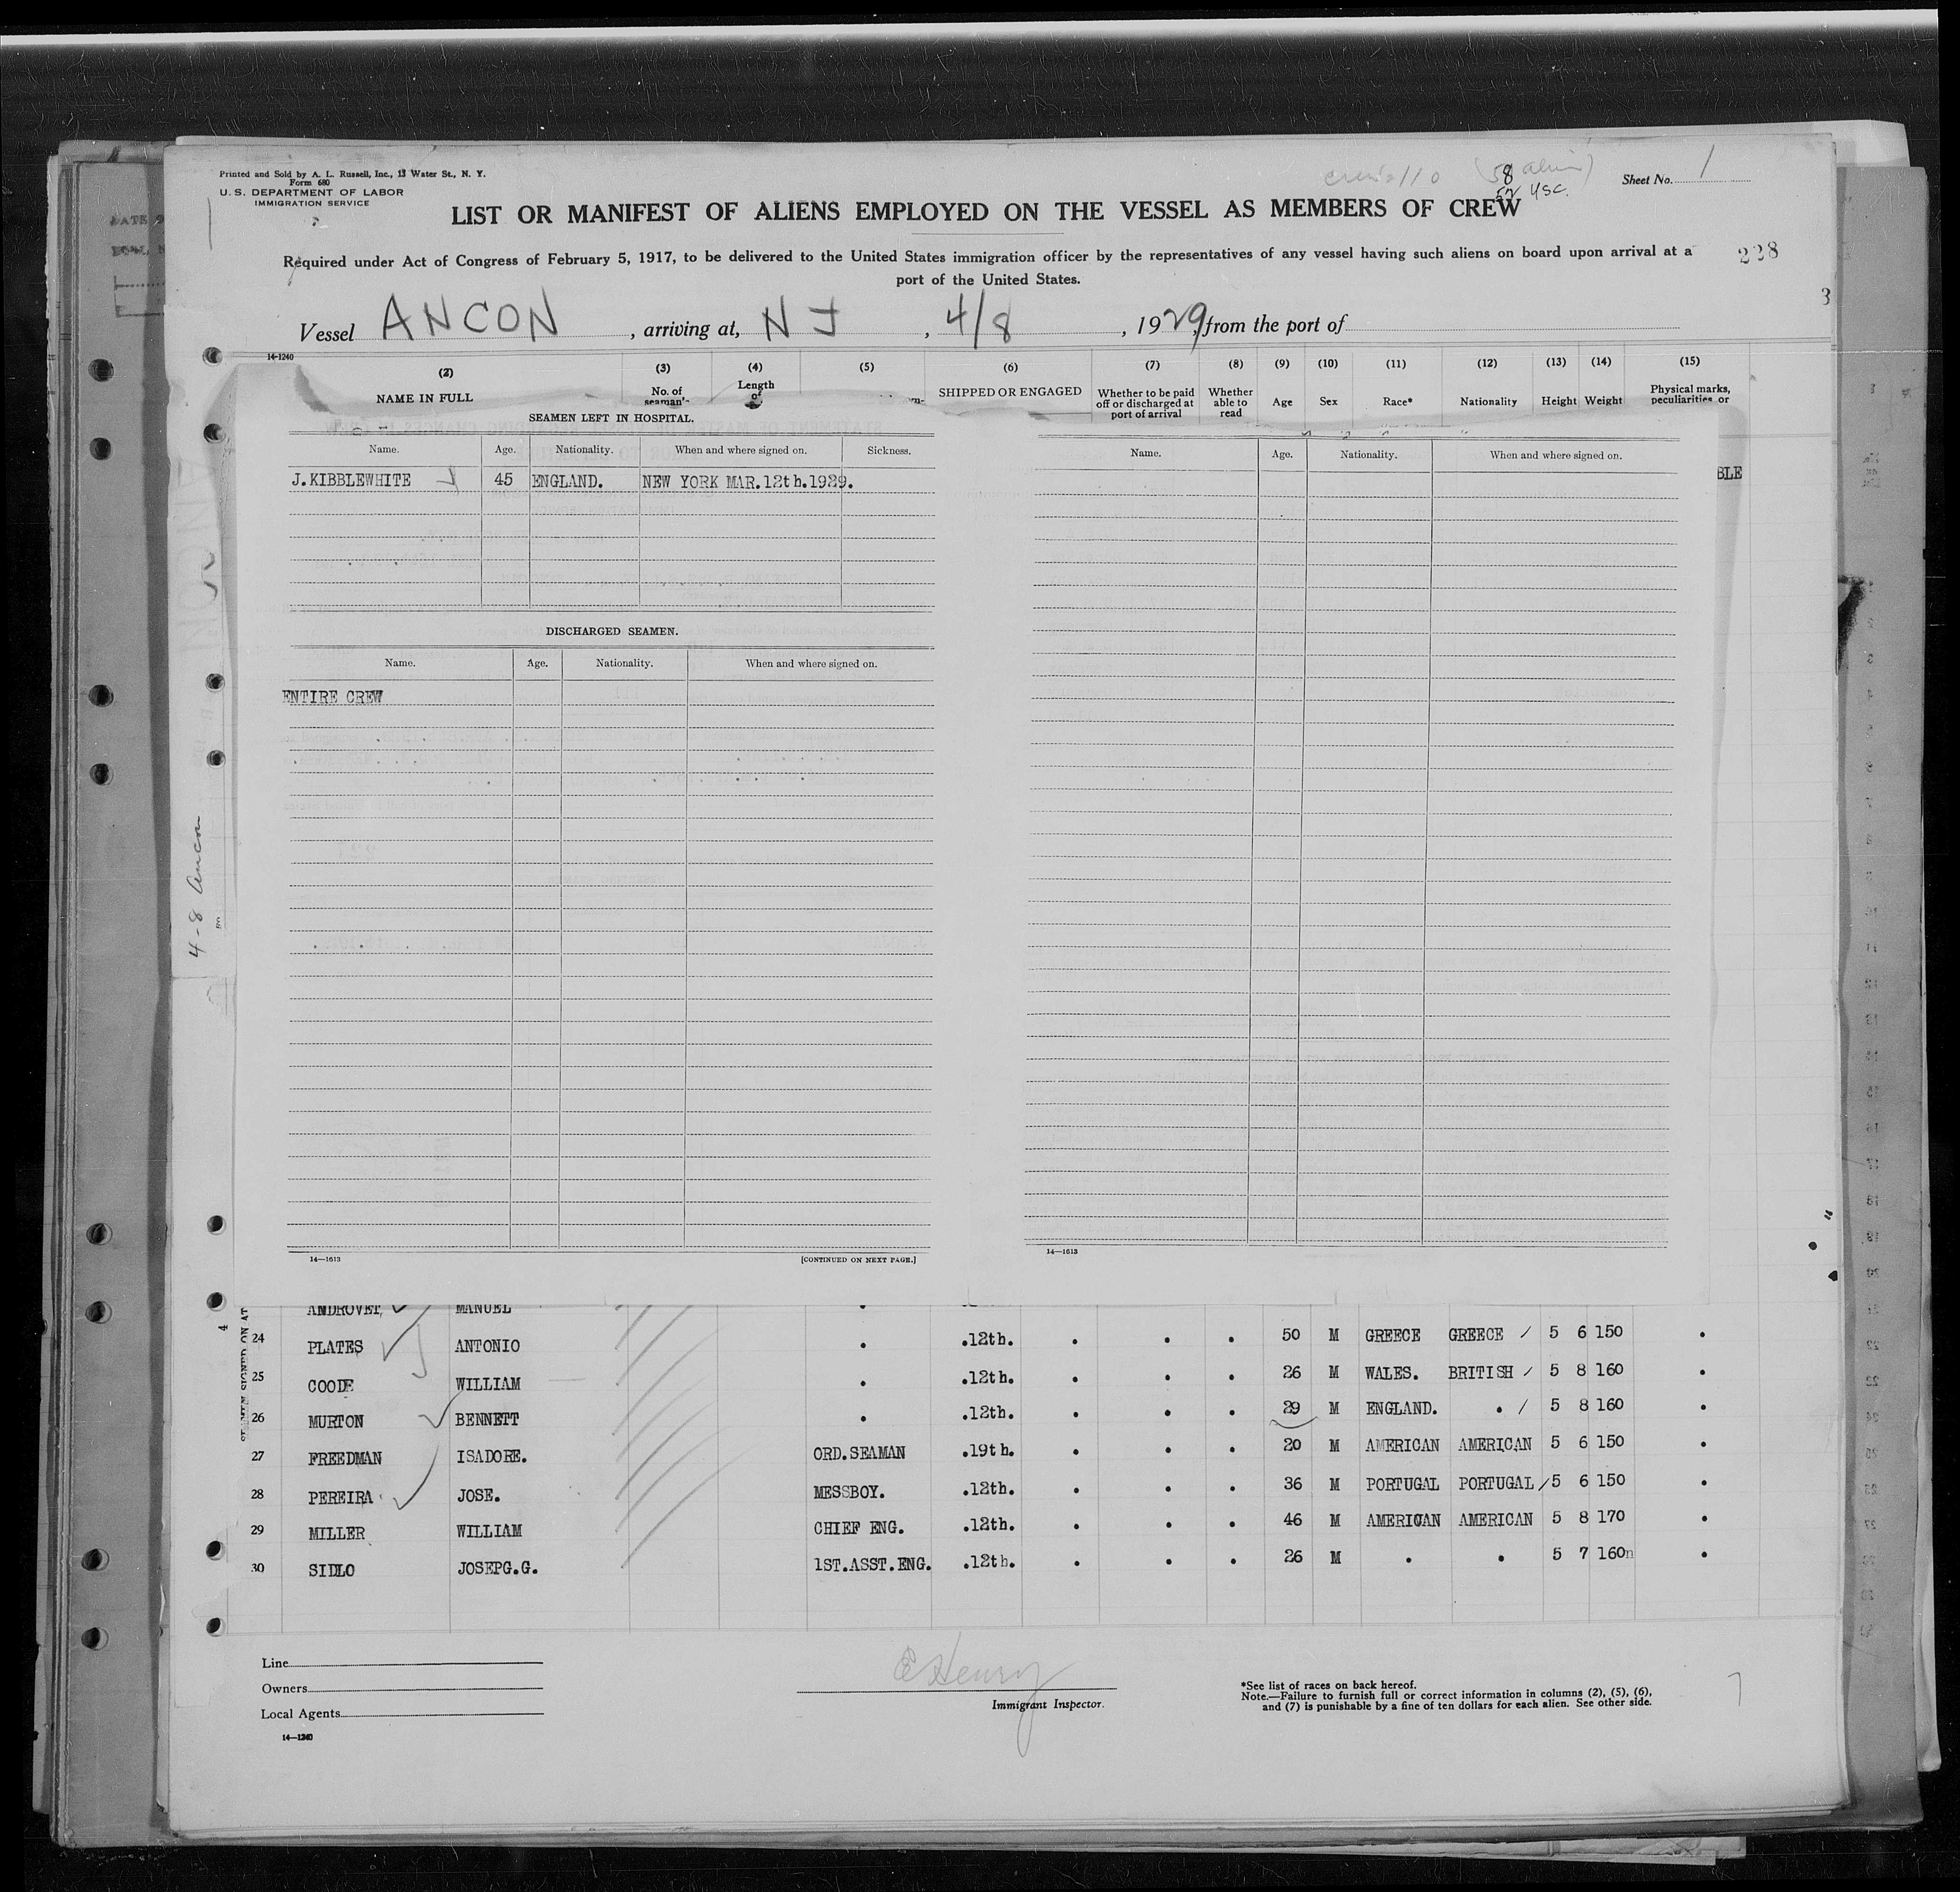 Printed and Sold by A. L. Russell, Inc., 13 Water St., N. Y.
Form 680
U. S. DEPARTMENT OF LABOR
IMMIGRATION SERVICE
(58 alien)
52 USC.
Sheet No. 1
LIST OR MANIFEST OF ALIENS EMPLOYED ON THE VESSEL AS MEMBERS OF CREW
Required under Act of Congress of February 5, 1917, to be delivered to the United States immigration officer by the representatives of any vessel having such aliens on board upon arrival at a
port of the United States.
228
3
Vessel ANCON, arriving at, N J, 4/8, 1929, from the port of
14-1240
(2) (3) (4) (5) (6) (7) (8) (9) (10) (11) (12) (13) (14) (15)
NAME IN FULL No. of seaman'- Length of SHIPPED OR ENGAGED Whether to be paid off or discharged at port of arrival Whether able to read Age Sex Race* Nationality Height Weight Physical marks, peculiarities or
SEAMEN LEFT IN HOSPITAL.
Name. Age. Nationality. When and where signed on. Sickness.
J.KIBBLEWHITE 45 ENGLAND. NEW YORK MAR.12th.1929.
DISCHARGED SEAMEN.
Name. Age. Nationality. When and where signed on.
ENTIRE CREW
14—1613 [CONTINUED ON NEXT PAGE.]
Name. Age. Nationality. When and where signed on.
BLE
14—1613
4-8 Ancon
4
ANDROVET, MANUEL
24 PLATES ANTONIO . .12th. . . . 50 M GREECE GREECE / 5 6 150 .
25 COODE WILLIAM . .12th. . . . 26 M WALES. BRITISH / 5 8 160 .
26 MURTON BENNETT . .12th. . . . 29 M ENGLAND. . / 5 8 160 .
27 FREEDMAN ISADORE. ORD.SEAMAN .19th. . . . 20 M AMERICAN AMERICAN 5 6 150 .
28 PEREIRA JOSE. MESSBOY. .12th. . . . 36 M PORTUGAL PORTUGAL / 5 6 150 .
29 MILLER WILLIAM CHIEF ENG. .12th. . . . 46 M AMERICAN AMERICAN 5 8 170 .
30 SIDLO JOSEPG.G. 1ST.ASST.ENG. .12th. . . . 26 M . . 5 7 160n .
Line
Owners
Local Agents
14—1240
E Henry
Immigrant Inspector.
*See list of races on back hereof.
Note.—Failure to furnish full or correct information in columns (2), (5), (6),
and (7) is punishable by a fine of ten dollars for each alien. See other side.